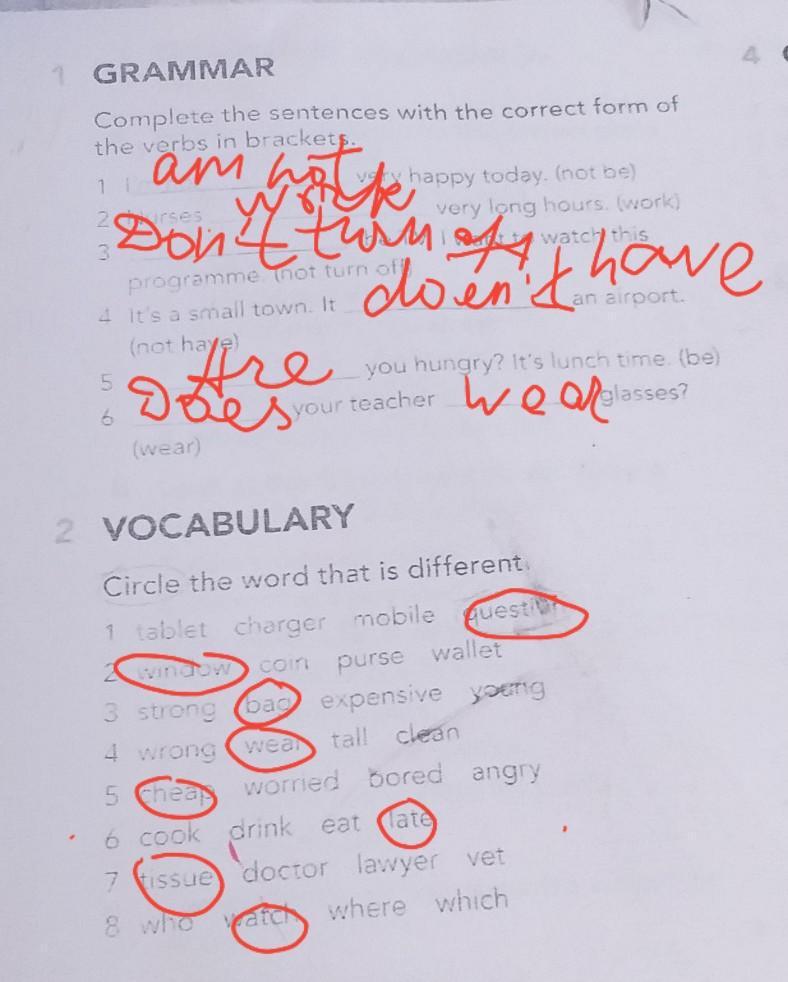 1 GRAMMAR
4
Complete the sentences with the correct form of
the verbs in brackets.
1 I am not very happy today. (not be)
2 Nurses work very long hours. (work)
3 Don't turn off I want to watch this
programme. (not turn off)
4 It's a small town. It doen't have an airport.
(not have)
5 Are you hungry? It's lunch time. (be)
6 Does your teacher wear glasses?
(wear)
2 VOCABULARY
Circle the word that is different.
1 tablet charger mobile question
2 window coin purse wallet
3 strong bag expensive young
4 wrong wear tall clean
5 cheap worried bored angry
6 cook drink eat late
7 tissue doctor lawyer vet
8 who watch where which